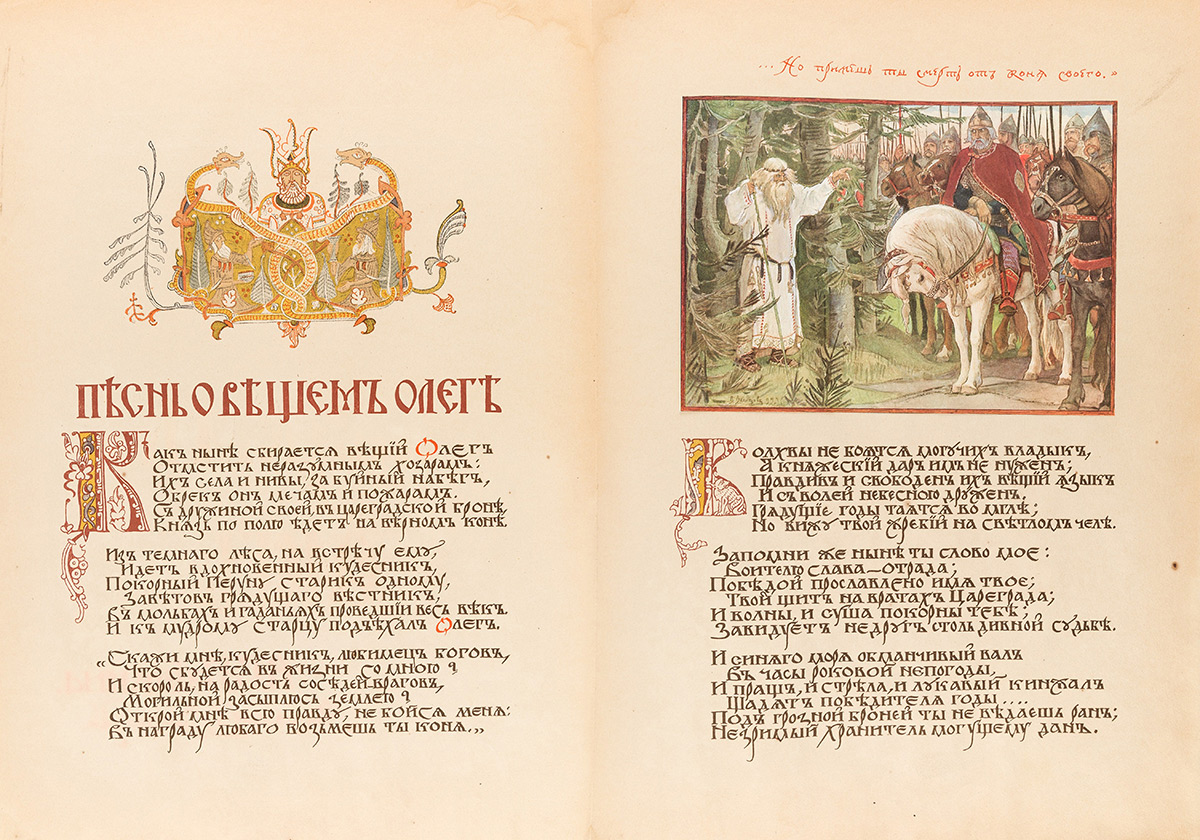 ПѢСНЬ О ВѢЩЕМЪ ОЛЕГѢ
Какъ нынѣ сбирается вѣщій Олегъ
Отмстить неразумнымъ хозарамъ:
Ихъ села и нивы, за буйный набѣгъ,
Обрек он мечам и пожарам.
Съ дружиной своей, въ цареградской бронѣ,
Князь по полю ѣдетъ на вѣрном конѣ.
Изъ темнаго лѣса, на встрѣчу ему,
Идетъ вдохновенный кудесник,
Покорный Перуну старик одному,
Завѣтовъ грядущаго вѣстникъ,
Въ мольбахъ и гаданьяхъ проведшій весь вѣкъ.
И къ мудрому старцу подъѣхалъ Олегъ.
„Скажи мнѣ, кудесник, любимец богов,
Что сбудется въ жизни со мною?
И скоро ль, на радость сосѣдей-врагов,
Могильной засыплюсь землею?
Открой мнѣ всю правду, не бойся меня:
Въ награду любаго возьмешь ты коня.„
...Но примешь ты смерть отъ коня своего.»
Волхвы не боятся могучих владык,
А княжескій даръ имъ не нужен;
Правдив и свободен ихъ вѣщій язык
И съ волей небесною дружен.
Грядущіе годы таятся во мглѣ;
Но вижу твой жребій на свѣтлом челѣ.
Запомни же нынѣ ты слово мое:
Воителю слава—отрада;
Побѣдой прославлено имя твое;
Твой щит на вратах Цареграда;
И волны, и суша покорны тебѣ;
Завидуетъ недругъ столь дивной судьбѣ.
И синяго моря обманчивый вал
Въ часы роковой непогоды,
И пращъ, и стрѣла, и лукавый кинжал
Щадятъ побѣдителя годы....
Подъ грозной броней ты не вѣдаешь ранъ;
Незримый хранитель могущему данъ.